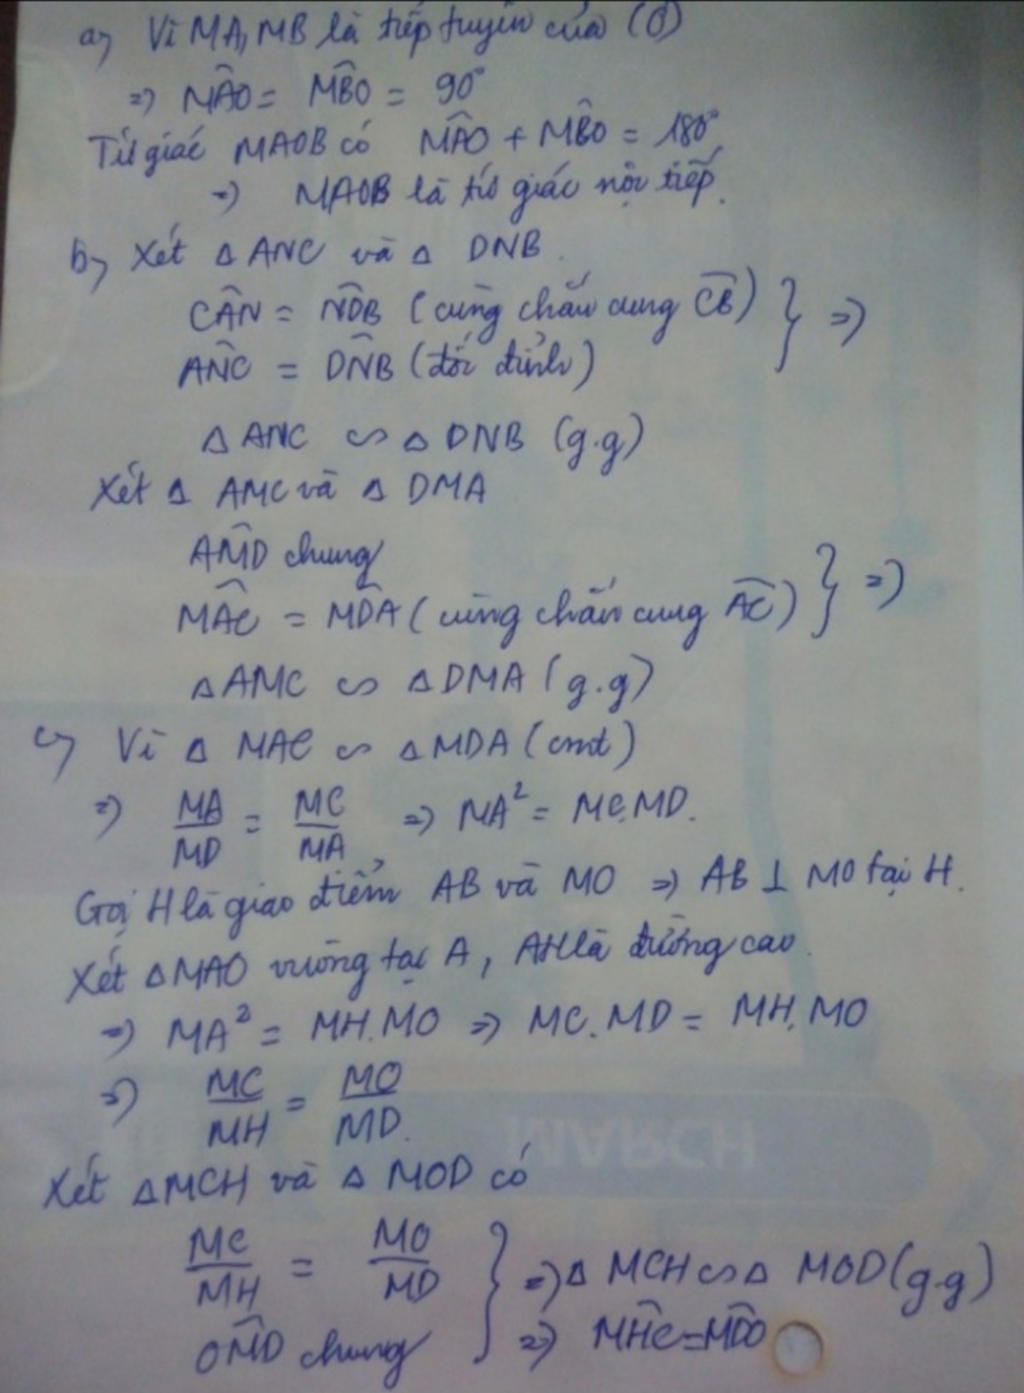 a, Vì MA, MB là tiếp tuyến của (O)
=> MÂO = MB̂O = 90°
Tứ giác MAOB có MÂO + MB̂O = 180°
=> MAOB là tứ giác nội tiếp.
b, Xét Δ ANC và Δ DNB.
CÂN = ND̂B (cùng chắn cung CB) } =>
AN̂C = DN̂B (đối đỉnh)
Δ ANC ∽ Δ DNB (g.g)
Xét Δ AMC và Δ DMA
AM̂D chung
MÂC = MD̂A (cùng chắn cung AC) } =>
Δ AMC ∽ Δ DMA (g.g)
c, Vì Δ MAC ∽ Δ MDA (cmt)
=> MA/MD = MC/MA => MA² = MC.MD.
Gọi H là giao điểm AB và MO => AB ⊥ MO tại H.
Xét Δ MAO vuông tại A, AH là đường cao.
=> MA² = MH.MO => MC.MD = MH.MO
=> MC/MH = MO/MD.
Xét Δ MCH và Δ MOD có
MC/MH = MO/MD } => Δ MCH ∽ Δ MOD (g.g)
OM̂D chung => MĤC = MD̂O
MARCH